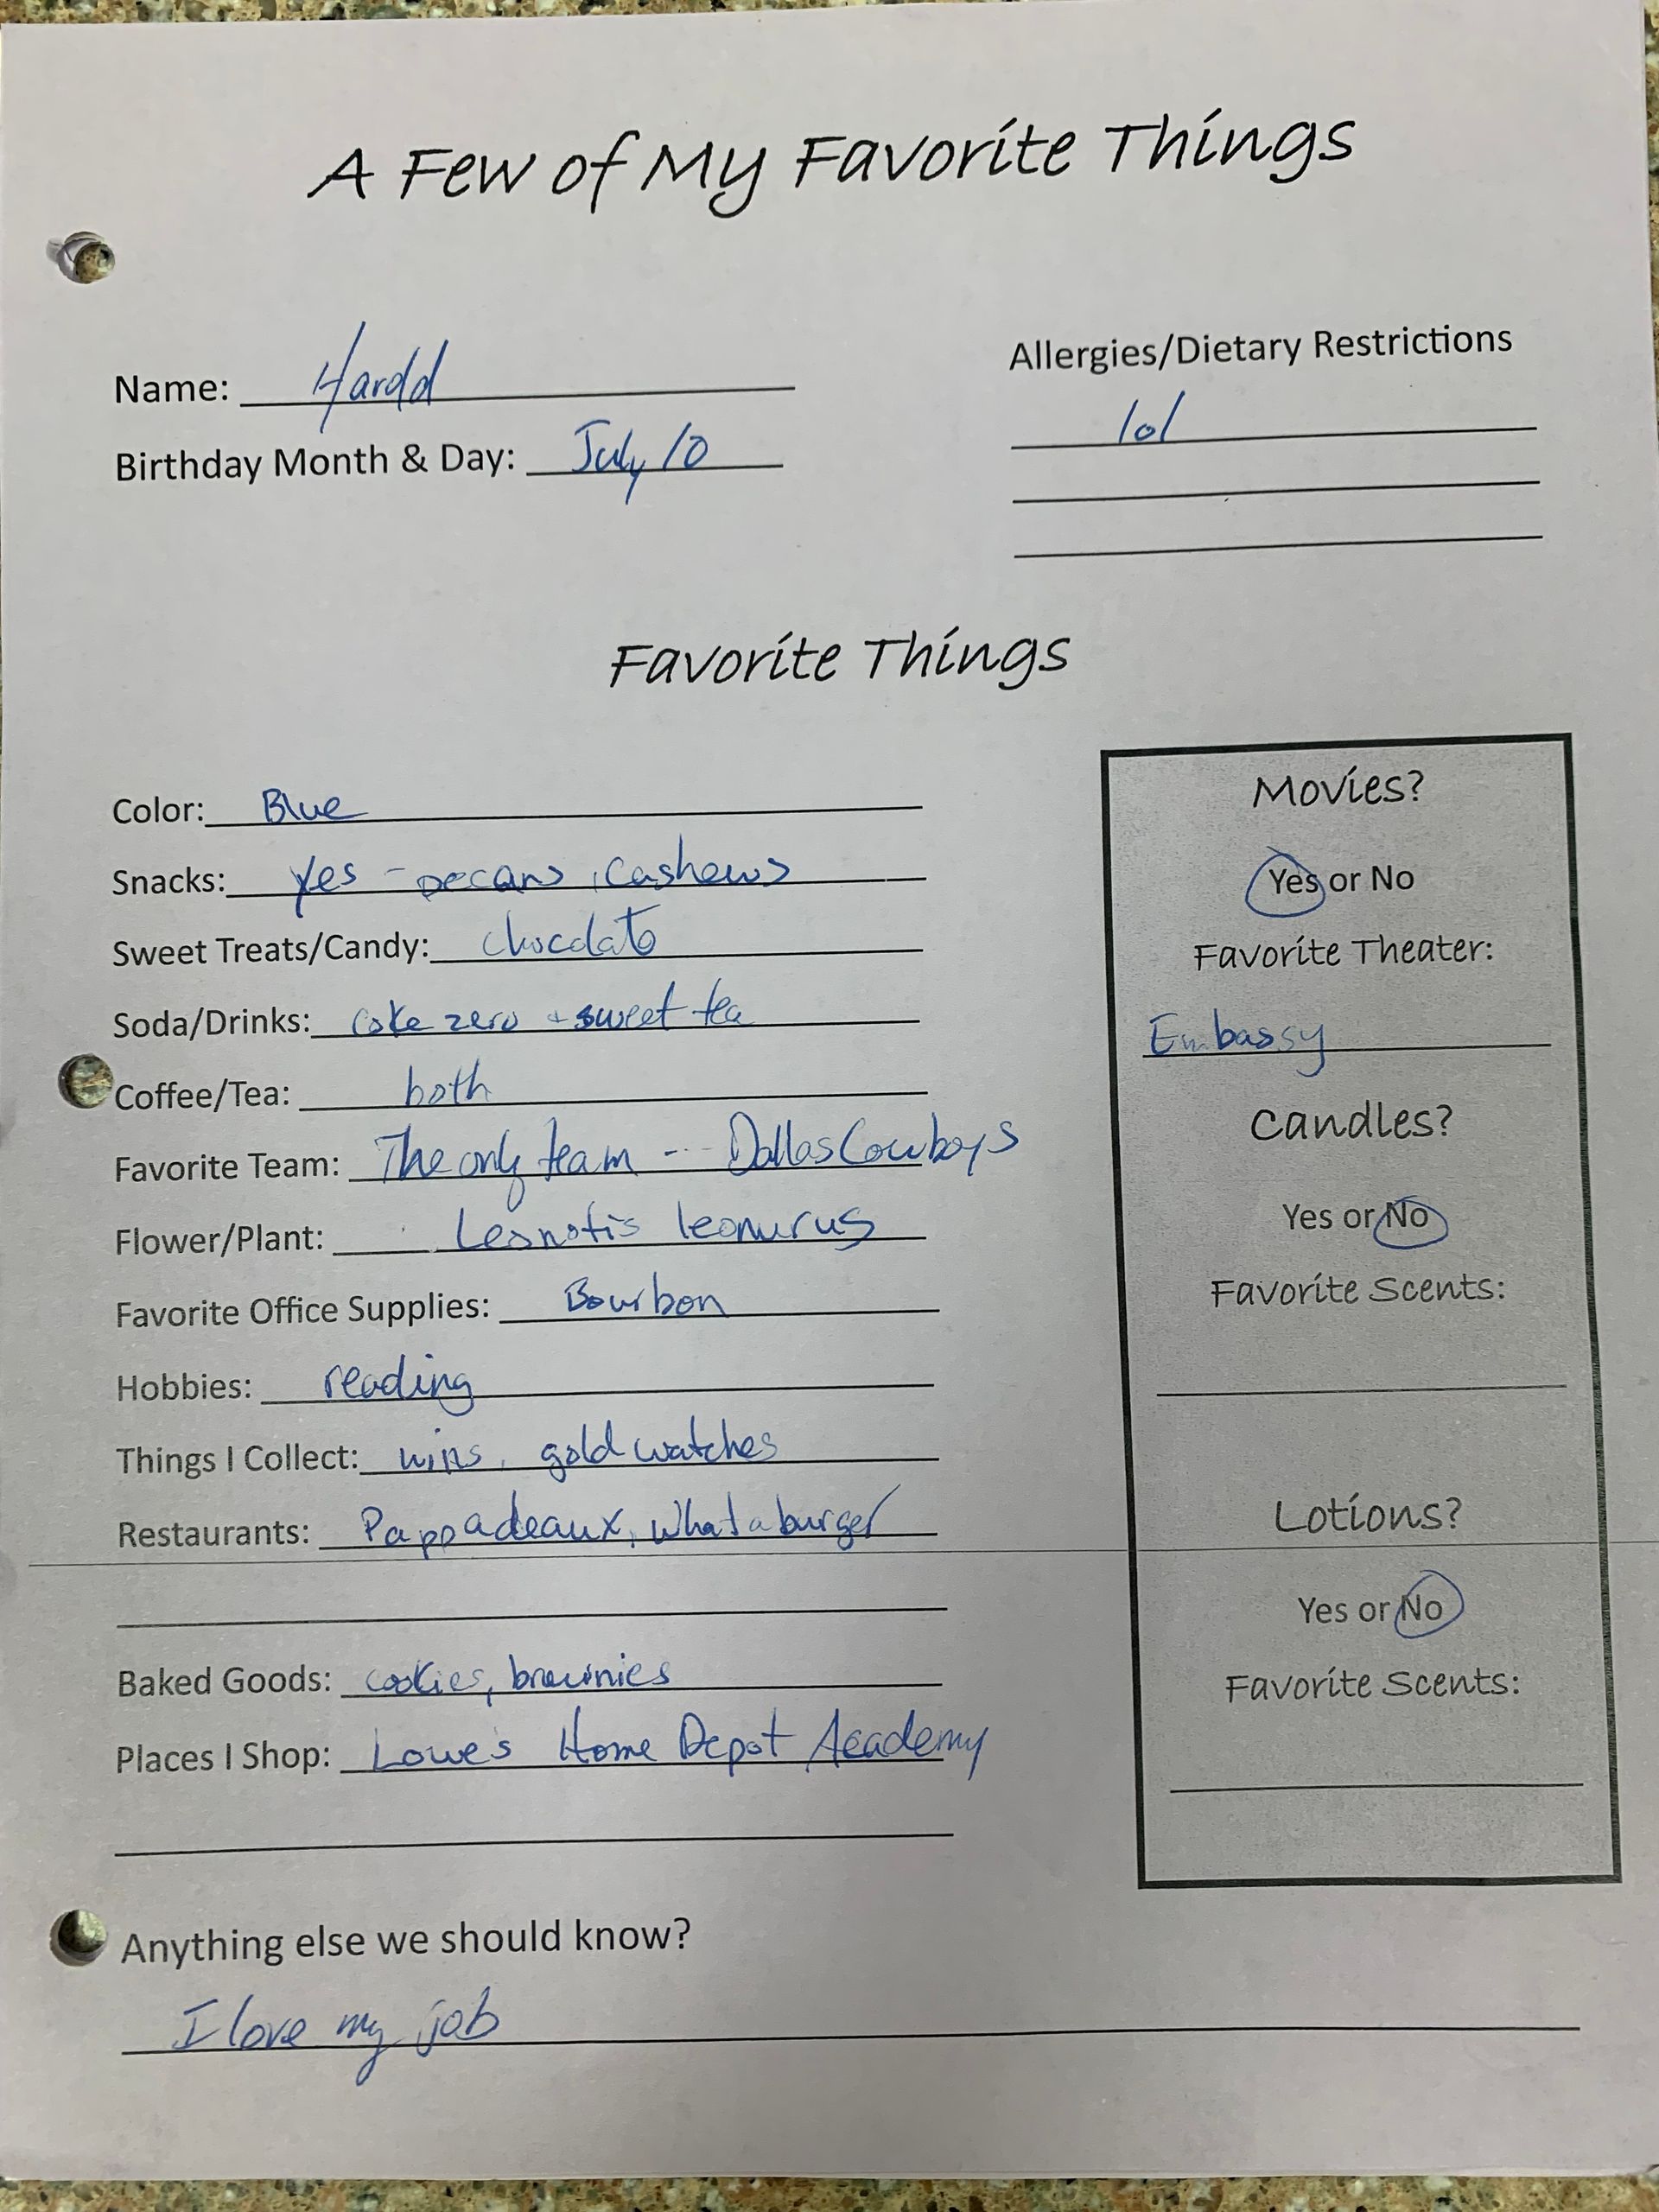 A Few of My Favorite Things
Name: Hardd
Birthday Month & Day: July 10
Allergies/Dietary Restrictions
lol
Favorite Things
Color: Blue
Snacks: yes - pecans, cashews
Sweet Treats/Candy: chocolate
Soda/Drinks: coke zero + sweet tea
Coffee/Tea: both
Favorite Team: The only team --- Dallas Cowboys
Flower/Plant: Leonotis leonurus
Favorite Office Supplies: Bourbon
Hobbies: reading
Things I Collect: wins, gold watches
Restaurants: Pappadeaux, Whataburger
Baked Goods: cookies, brownies
Places I Shop: Lowe's Home Depot, Academy
Movies?
Yes or No
Favorite Theater:
Embassy
Candles?
Yes or No
Favorite Scents:
Lotions?
Yes or No
Favorite Scents:
Anything else we should know?
I love my job